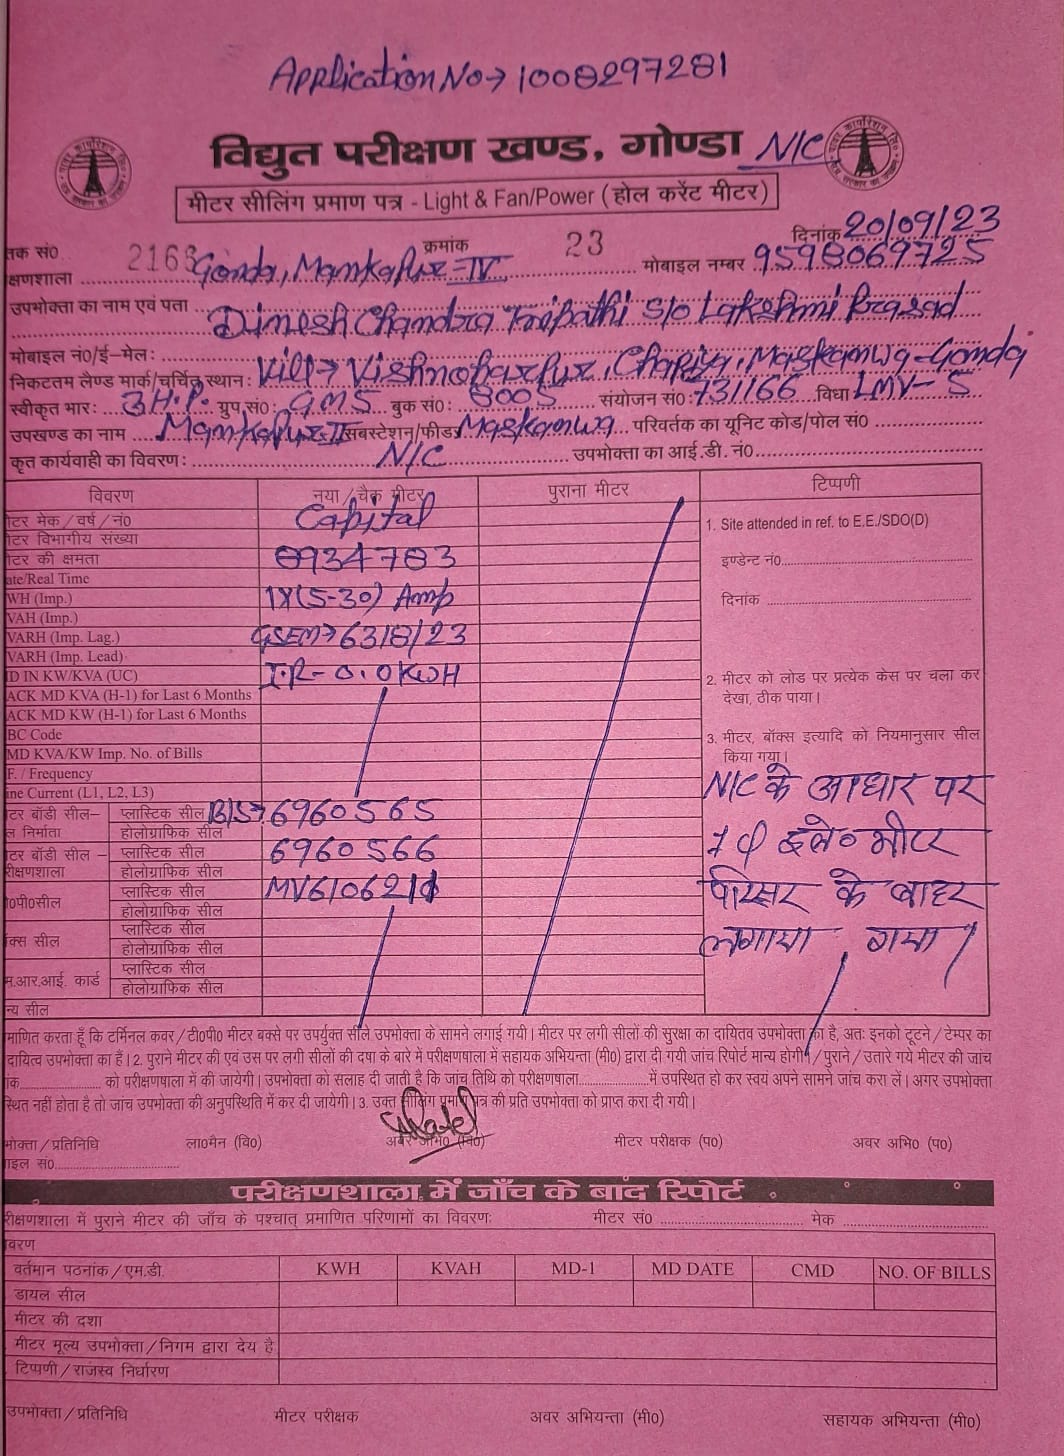 Application No→1008297281
विद्युत परीक्षण खण्ड, गोण्डा N/C
मीटर सीलिंग प्रमाण पत्र - Light & Fan/Power (होल करेंट मीटर)
तक सं0 2168 क्रमांक 23 दिनांक 20/09/23
क्षणशाला Gonda, Mamkapur-IV मोबाइल नम्बर 9598069725
उपभोक्ता का नाम एवं पता Dinesh Chandra Tripathi S/o Lakshmi Prasad
मोबाइल नं0/ई-मेल:
निकटतम लैण्ड मार्क/चर्चित स्थान: Vill→ Vishnoharpur, Chapiya, Maskanwa-Gonda
स्वीकृत भार: 3H.P. ग्रुप सं0: GMS बुक सं0: 8005 संयोजन सं0: 731166 विधा LMV-5
उपखण्ड का नाम Mamkapur-II सबस्टेशन/फीडर Maskanwa परिवर्तक का यूनिट कोड/पोल सं0
कृत कार्यवाही का विवरण: N/C उपभोक्ता का आई.डी. नं0
विवरण नया/चैक मीटर पुराना मीटर टिप्पणी
टर मेक/वर्ष/नं0 Capital
1. Site attended in ref. to E.E./SDO(D)
टर विभागीय संख्या
टर की क्षमता 8934783
इण्डेन्ट नं0
ate/Real Time
WH (Imp.) 1X(5-30) Amp
दिनांक
VAH (Imp.)
VARH (Imp. Lag.) GSEM→63/8/23
VARH (Imp. Lead)
D IN KW/KVA (UC) I.R- 0.0KWH
2. मीटर को लोड पर प्रत्येक केस पर चला कर
ACK MD KVA (H-1) for Last 6 Months
देखा, ठीक पाया।
ACK MD KW (H-1) for Last 6 Months
BC Code
3. मीटर, बॉक्स इत्यादि को नियमानुसार सील
MD KVA/KW Imp. No. of Bills
किया गया।
F. / Frequency
ine Current (L1, L2, L3)
N/C के आधार पर
टर बॉडी सील– प्लास्टिक सील B/S→6960565
ल निर्माता होलोग्राफिक सील
1 φ इले० मीटर
टर बॉडी सील – प्लास्टिक सील 6960566
रीक्षणशाला होलोग्राफिक सील
0पी0सील प्लास्टिक सील
परिसर के बाहर
होलोग्राफिक सील
क्स सील प्लास्टिक सील
लगाया गया।
होलोग्राफिक सील
म.आर.आई. कार्ड प्लास्टिक सील
होलोग्राफिक सील
न्य सील
माणित करता हूँ कि टर्मिनल कवर/टी0पी0 मीटर बक्से पर उपर्युक्त सीलें उपभोक्ता के सामने लगाई गयी। मीटर पर लगी सीलों की सुरक्षा का दायितव उपभोक्ता का है, अतः इनको टूटने/टेम्पर का
दायित्व उपभोक्ता का हैं। 2. पुराने मीटर की एवं उस पर लगी सीलों की दषा के बारे में परीक्षणषाला में सहायक अभियन्ता (मी0) द्वारा दी गयी जांच रिपोर्ट मान्य होगी।/पुराने/उतारे गये मीटर की जांच
कं को परीक्षणषाला में की जायेगी। उपभोक्ता को सलाह दी जाती है कि जांच तिथि को परीक्षणषाला में उपस्थित हो कर स्वयं अपने सामने जांच करा लें। अगर उपभोक्ता
स्थित नहीं होता है तो जांच उपभोक्ता की अनुपस्थिति में कर दी जायेगी। 3. उक्त सीलिंग प्रमाण पत्र की प्रति उपभोक्ता को प्राप्त करा दी गयी।
भोक्ता/प्रतिनिधि ला0मैन (वि0) अवर अभि0 (वि0) मीटर परीक्षक (प0) अवर अभि0 (प0)
ाइल सं0
परीक्षणशाला में जाँच के बाद रिपोर्ट
रीक्षणशाला में पुराने मीटर की जाँच के पश्चात् प्रमाणित परिणामों का विवरणः मीटर सं0 मेक
वरण
वर्तमान पठनांक/एम.डी. KWH KVAH MD-1 MD DATE CMD NO. OF BILLS
डायल सील
मीटर की दशा
मीटर मूल्य उपभोक्ता/निगम द्वारा देय है
टिप्पणी/राजस्व निर्धारण
उपभोक्ता/प्रतिनिधि मीटर परीक्षक अवर अभियन्ता (मी0) सहायक अभियन्ता (मी0)